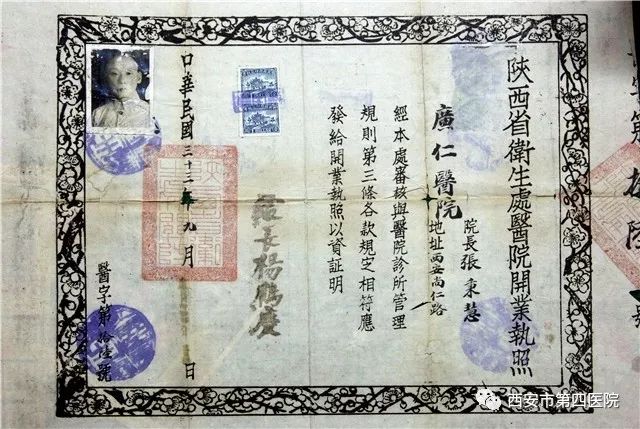 陝西省衛生處醫院開業執照
廣仁醫院
院長張秉慧
地址西安尚仁路
經本處審核與醫院診所管理
規則第三條各款規定相符應
發給開業執照以資証明
長楊鶴慶
華民國三十三年九月 日
醫字第拾陸號
西安市第四医院